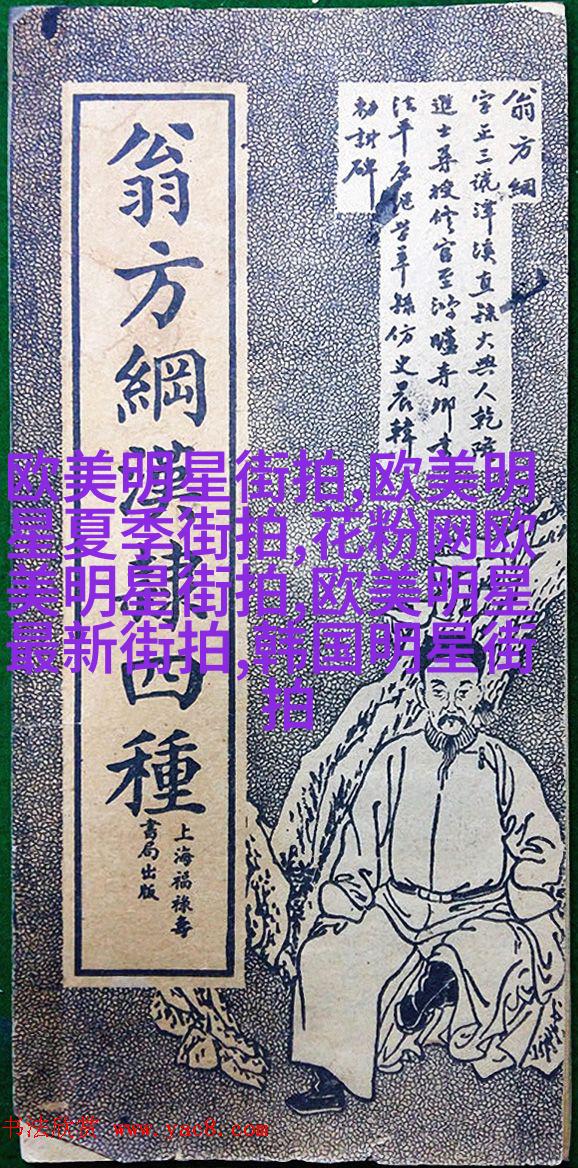 翁方綱漢隸四種
上海福祿壽
書局出版
翁方綱
字正三號潭溪直隸大興人乾隆
進士尋授修官至鴻臚寺卿書
法平原繼皆率孫仿史晨韓
勅討碑
欧美明星街拍,欧美明
星夏季街拍,花粉网欧
美明星街拍,欧美明星
最新街拍,韩国明星街
拍
书法欣赏 www.yac8.com